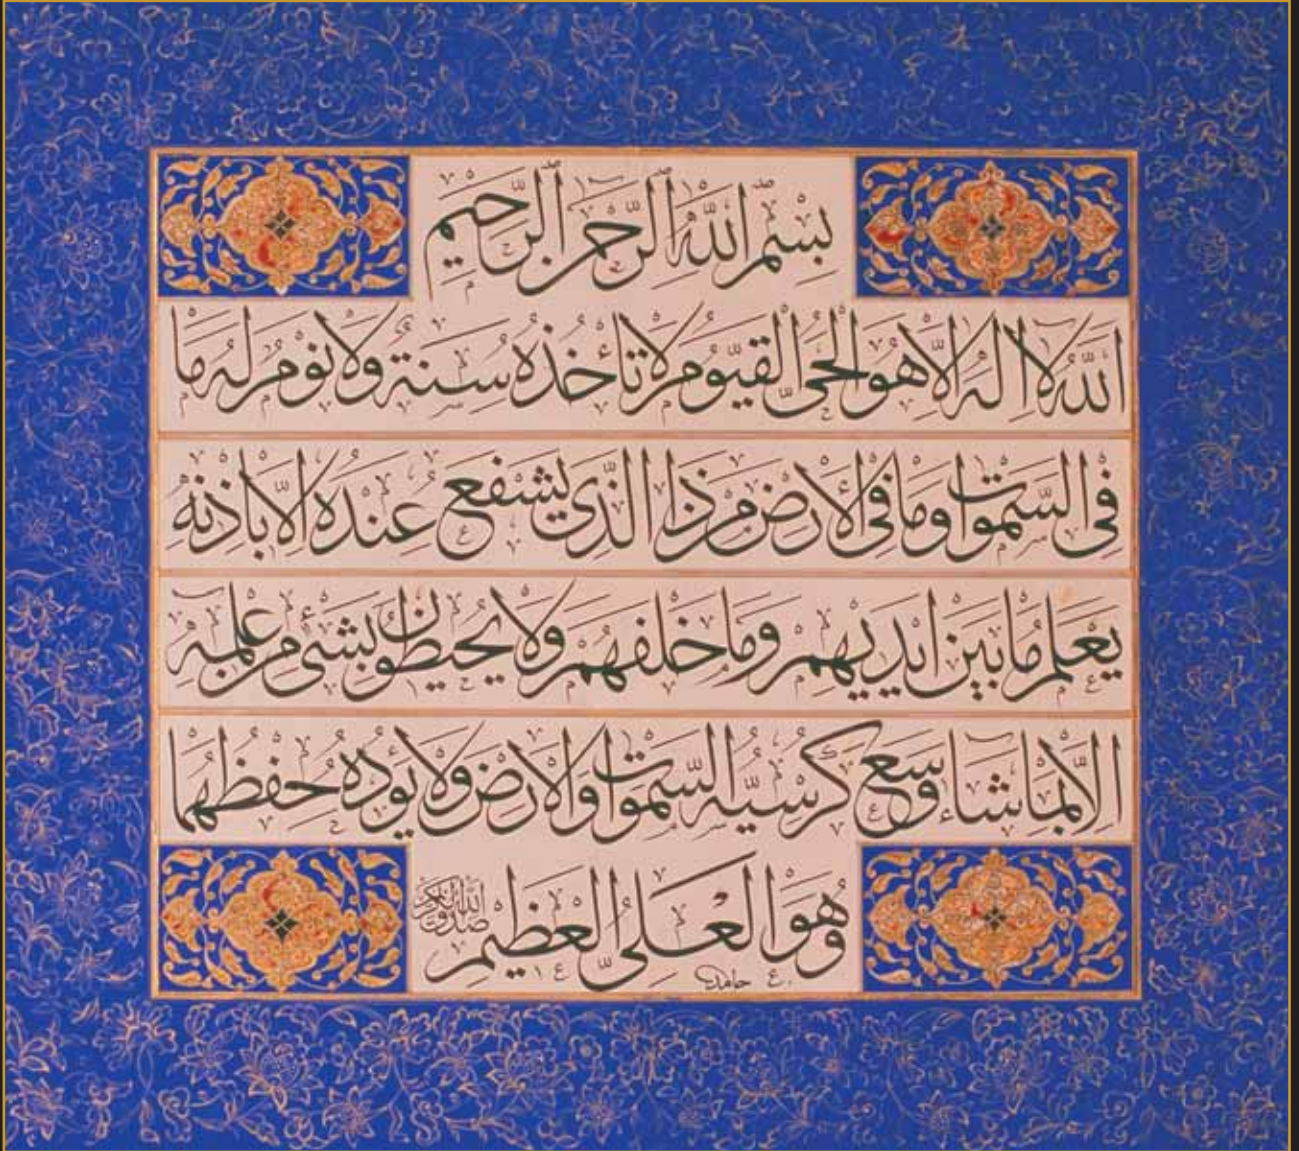 بسم الله الرحمن الرحيم
الله لا اله الا هو الحي القيوم لا تأخذه سنة ولا نوم له ما
في السموات وما في الأرض من ذا الذي يشفع عنده الا باذنه
يعلم ما بين ايديهم وما خلفهم ولا يحيطون بشئ من علمه
الا بما شاء وسع كرسيه السموات والارض ولا يؤده حفظهما
وهو العلي العظيم
حامد